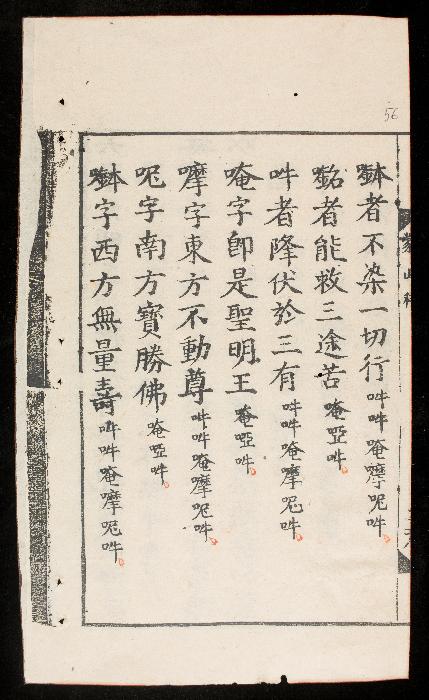 56
𤙖者不染一切行吽吽唵摩呢吽
㗶者能救三途苦唵啞吽
吽者降伏於三有吽吽唵摩呢吽
唵字卽是聖明王唵啞吽
嚤字東方不動尊吽吽唵摩呢吽
呢字南方寶勝佛唵啞吽
字西方無量壽吽吽唵摩呢吽
蒙山